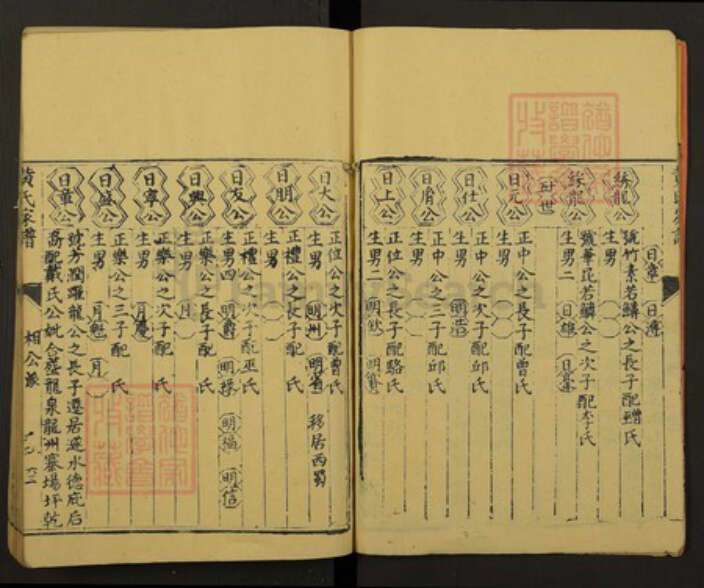 號竹素若鱗公之長子配曾氏
生男 日章 日
公
號華昆若鱗公之次子配李氏
生男二 日雄
世
日元公
正中公之長子配曾氏
生男
日仕公
正中公之次子配邱氏
生男 明浩
日脩公
正中公之三子配邱氏
生男
日上公
正位公之長子配駱氏
生男二 明欽
日大公
正位公之次子配曹氏
生男 明州 移居西蜀
日朋公
正禮公之長子配 氏
生男
日友公
正禮公之次子配巫氏
生男四 明爵 明祿 明福 明信
日興公
正樂公之長子配 氏
生男 月
日寧公
正樂公之次子配 氏
生男 月慶
日盛公
正樂公之三子配 氏
生男 月魁 月
日章公
龍公之長子遷居蓬水德庇后
喬配戴氏公妣合葬龍泉龍州寨場坪乾
黃氏家譜
相公派
FamilySearch